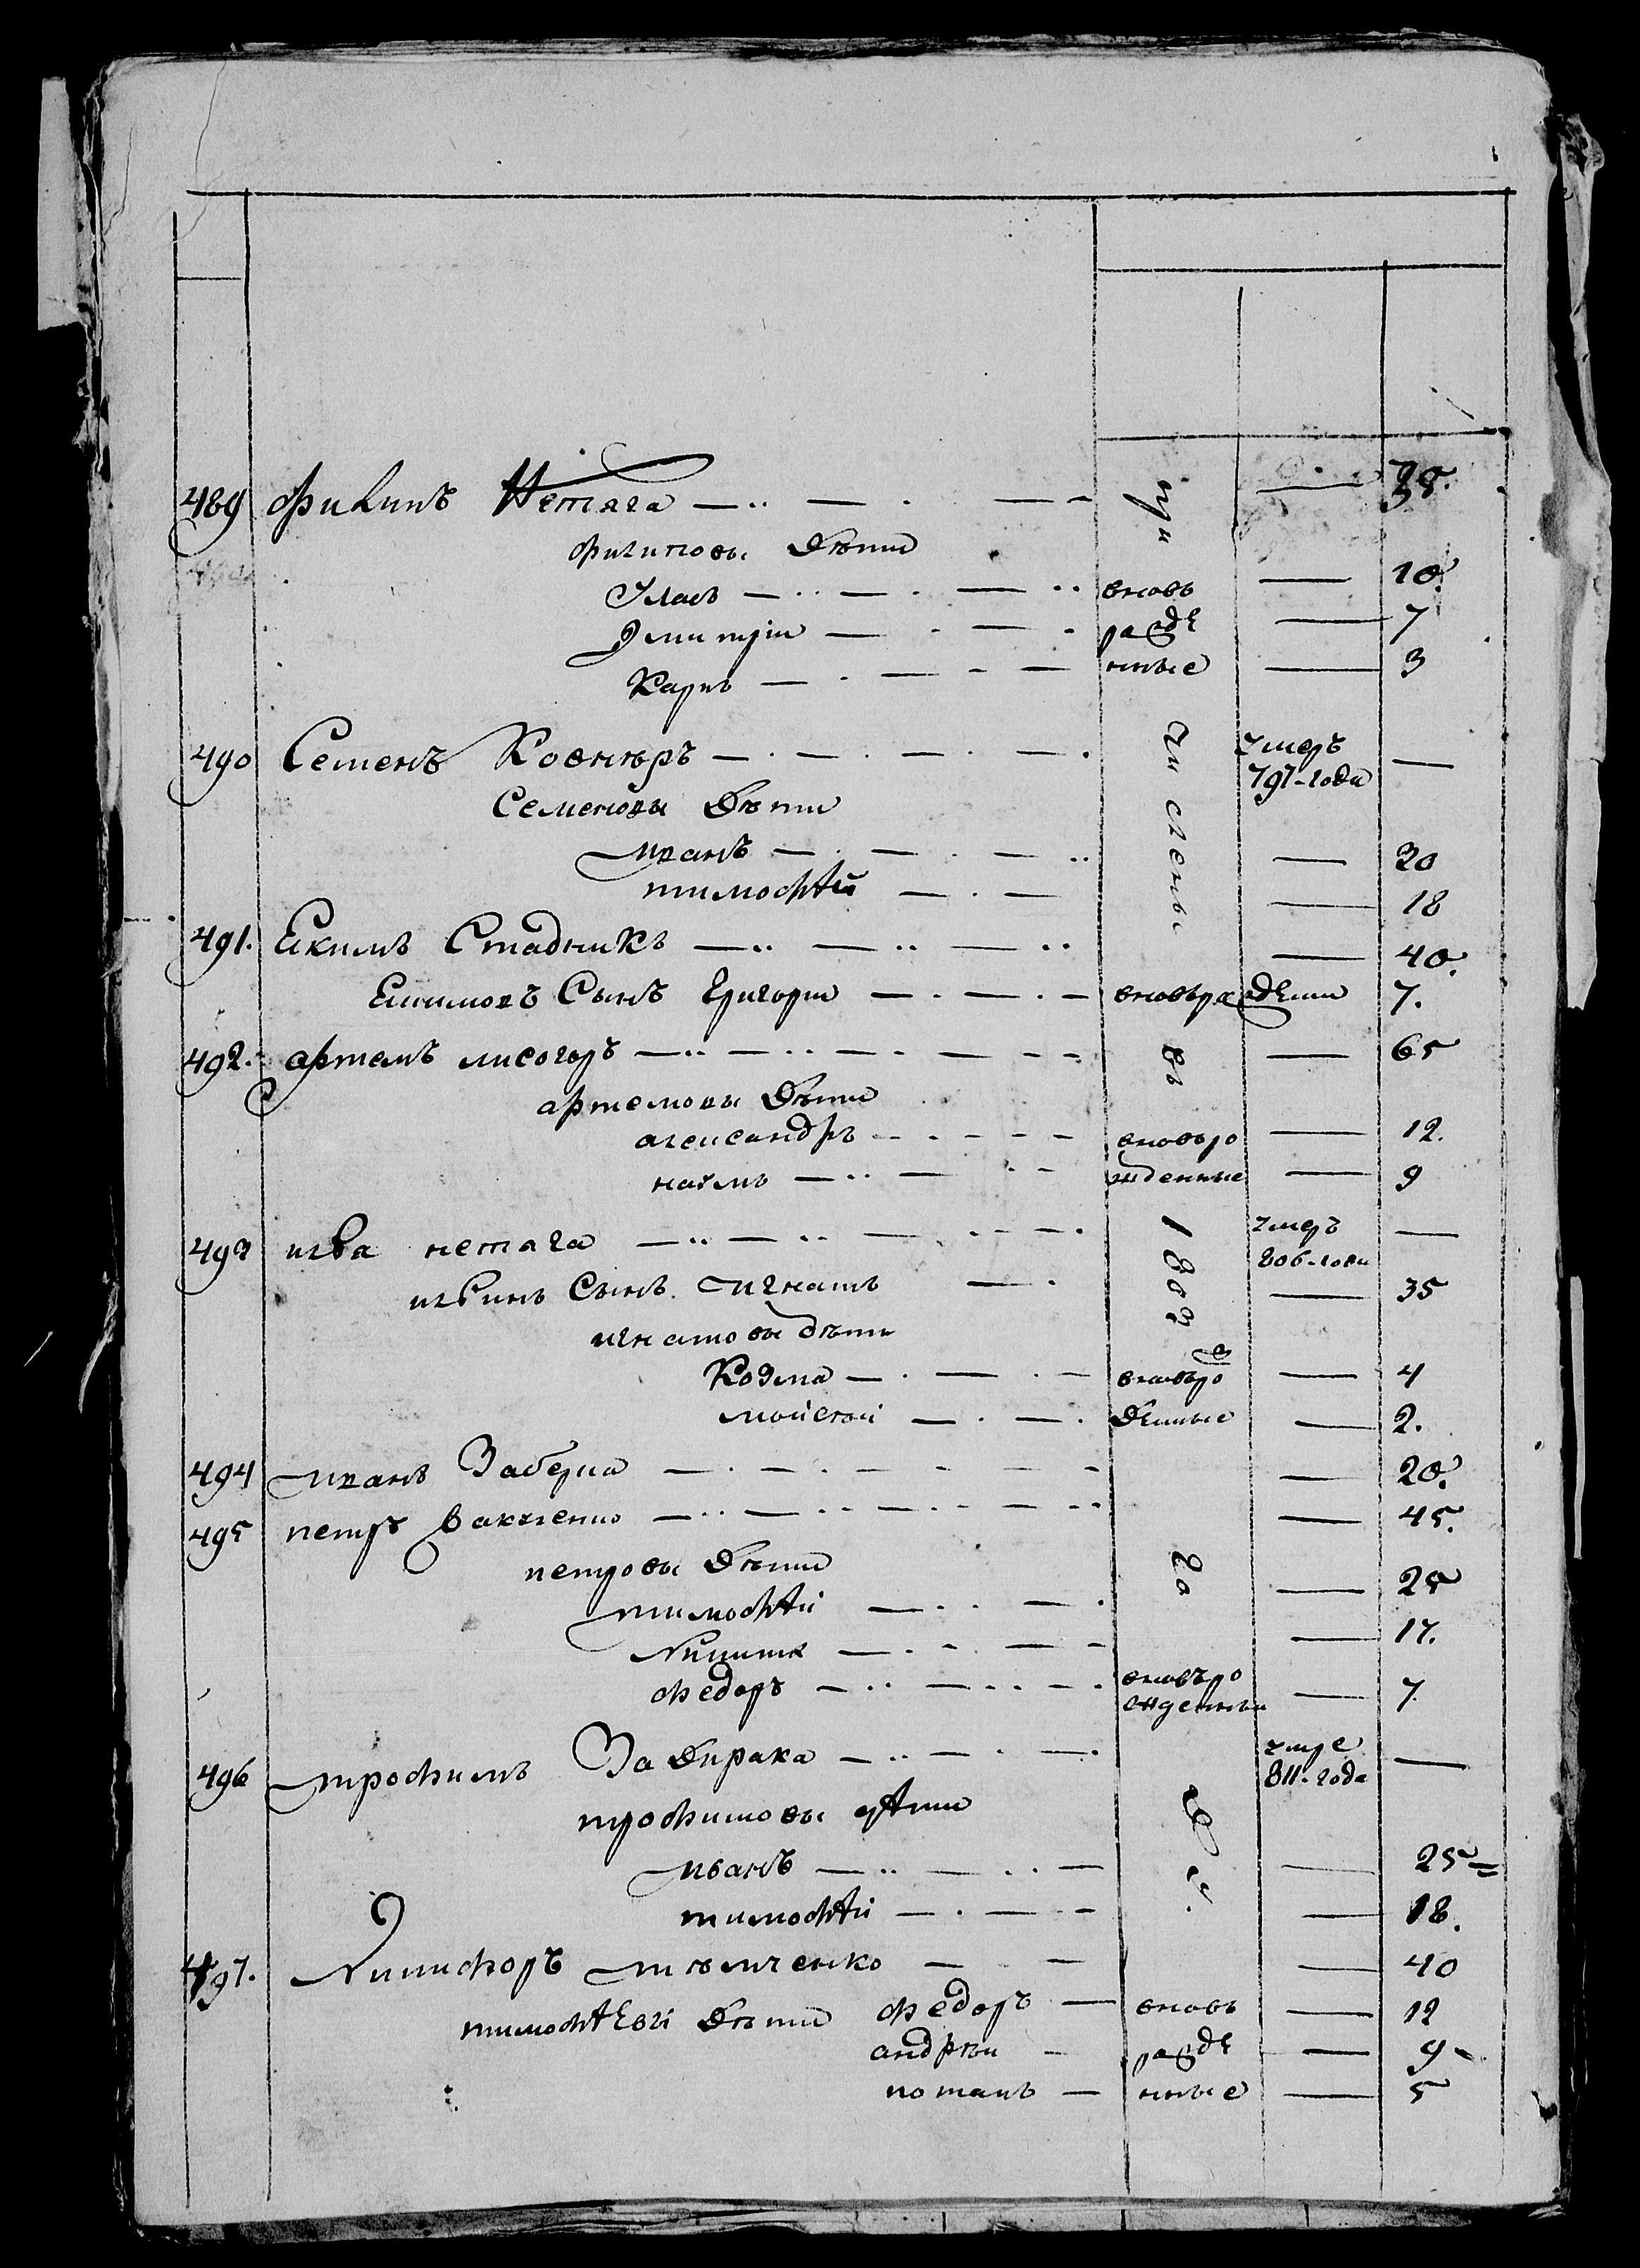 489 Филипъ Нетяга — 38.
филиповы дѣти
Уласъ — вновь — 10.
Дмитри — рожде — 7
Карпъ — нные — 3
490 Семенъ Ковнѣръ — умеръ 797-года —
Семеновы дѣти
иванъ — 20
тимофѣй — 18
491. Екимъ Стадникъ — 40.
Екимовъ Сынъ Григори — вновьрождени 7.
492. артемъ лисогоръ — 65
артемовы дѣти
александръ — вновьро — 12.
наумъ — жденные — 9
493 илва нетяга — умеръ 806-года —
илвинъ Сынъ игнатъ — 35
игнатовы дѣти
Козма — вновьро — 4
мойсей — жденные — 2.
494 иванъ Заберка — 20.
495 петръ вакуленко — 45.
петровы дѣти
тимофѣй — 25
Никита — 17.
федоръ — вновъро жденны — 7.
496 трофимъ Задирака — умре 811-года —
трофимовы дѣти
иванъ — 25
тимофѣй — 18.
497. Никифоръ тѣмченко — 40
тимофѣеви дѣти федоръ — вновь — 12
андрѣи — рожде — 9
потапъ — нные — 5
при численны въ 1803 го ду.